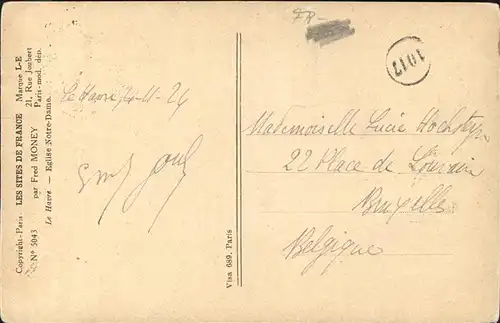 Copyright-Paris LES SITES DE FRANCE Marque L-E
Nº 5043 par Fred MONEY 21, Rue Joubert
Paris-mod. dép.
Le Havre — Eglise Notre-Dame.
Le Havre 24
Visa 689, Paris
FR-
1017
Mademoiselle Lucie
22 Place de Louvain
Bruxelles
Belgique